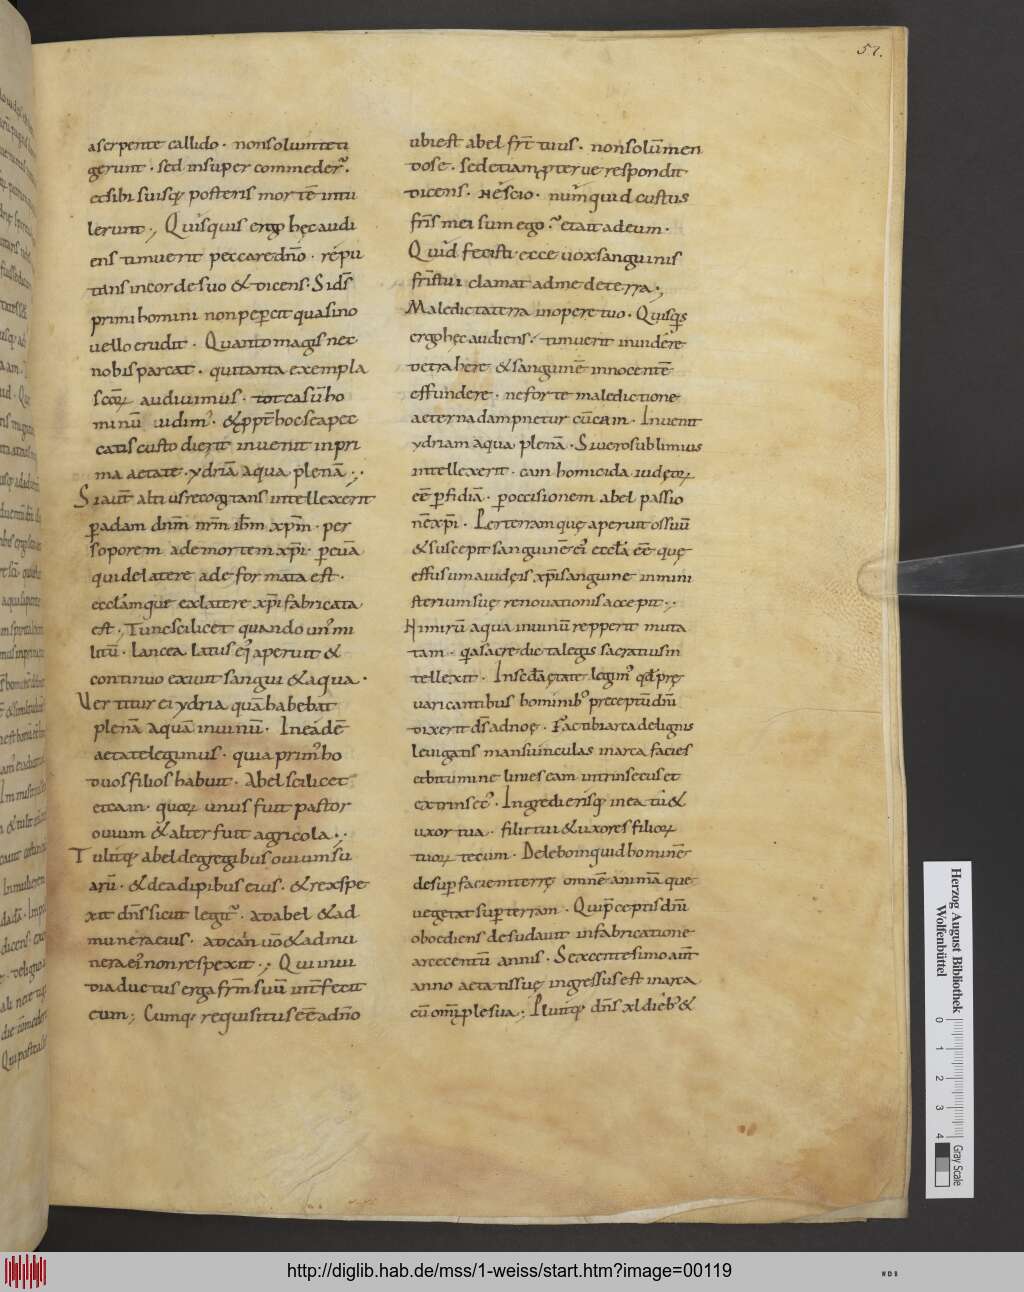 57.
a serpente callido · non solum teti
gerunt · sed insuper commeder͛ ·
et sibi suisq; posteris mortē intu
lerunt ·, Quisquis ergo hęc audi
ens timuerit peccare dn̄o · repu
tans in corde suo & dicens · Si ds̄
primi homini non peꝑcit quasi no
uello erudit · Quanto magis nec
nobis parcat · qui tanta exempla
sc̄oꝝ audiuimus · tot casū ho
minū uidim᾽ · & ꝓpt̄ hoc se a pec
catis custodierit inuenit in pri
ma aetate · ydriā aqua plenā ·,·
Si aut̄ altius recogitans intellexerit
ꝑ adam dn̄m nr̄m ih̄m xp̄m · per
soporem ade mortem xp̄i · ꝑ euā
qui de latere ade formata est ·
ecclām que ex latere xp̄i fabricata
est ·, Tunc scilicet quando un᾽ mi
litū · lancea latus ei᾽ aperuit &
continuo exiuit sangui & aqua ·
Uertitur ei ydria quā habebat
plenā aqua in uinū · In eadē
aetate legimus · quia prim᾽ ho
duos filios habuit · Abel scilicet
et cain · quoꝝ unus fuit pastor
ouium & alter fuit agricola ·,·
Tulitq; abel de gregibus ouium su
arū · & de adipibus eius · & respe
xit dn̄s sicut legit͛ · ad abel & ad
munera eius · ad cain uō & ad mu
nera ei᾽ non respexit ·, Qui inui
dia ductus erga frm̄ suū int̄fecit
eum ; Cumq; requisitus eēt a dn̄o
ubi est abel frt̄ tuus · non solū men
dose · sed etiam ꝓterue respondit
dicens · Nescio · numquid custus
frīs mei sum ego ? et ait ad eum ·
Quid fecisti ecce uox sanguinis
frīs tui clamat ad me de terra ·,
Maledicta terra in opere tuo · Quisq̄s
ergo hęc audiens · timuerit inuidere
detrahere & sanguinē innocentē
effundere · ne forte maledictione
aeterna dampnetur cū cain · Inuenit
ydriam aqua plenā · Si uero sublimius
intellexerit · cain homicida iudęoꝝ
eē ꝑfidiā · ꝑ occisionem abel passio
nē xp̄i · Per terram quę aperuit os suū
& suscepit sanguinē ei᾽ ecclā eē quę
effusum a iudęis xp̄i sanguine in mini
sterium suę renouationis accepit ·,·
Nimirū aqua in uinū repperit muta
tam · q̄a sacre dicta legis sacratius in
tellexit · In sec̄da ętate legim᾽ qd̄ pre
uaricantibus hominib᾽ preceptū dn̄i
dixerit ds̄ ad noę · Fac tibi arca de lignis
leuigatis mansiunculas in arca facies
et bitumine linies eam intrinsecus et
extrinsec᾽ · Ingredierisq; in ea tū &
uxor tua · filii tui & uxores filioꝝ
tuoꝝ tecum · Delebo inquid hominē
de superfacięm terrę omnē animā que
uegetat suꝑ terram · Qui p̄ceptis dn̄i
oboediens desudauit in fabricatione
arcę centū annis · Sexcentesimo aut̄
anno aetatis suę ingressus est in arca
cū om̄i ꝓle sua ·, Pluitq; dn̄s xl dieb᾽ &
Herzog August Bibliothek
Wolfenbüttel
0 1 2 3 4
Gray Scale
http://diglib.hab.de/mss/1-weiss/start.htm?image=00119